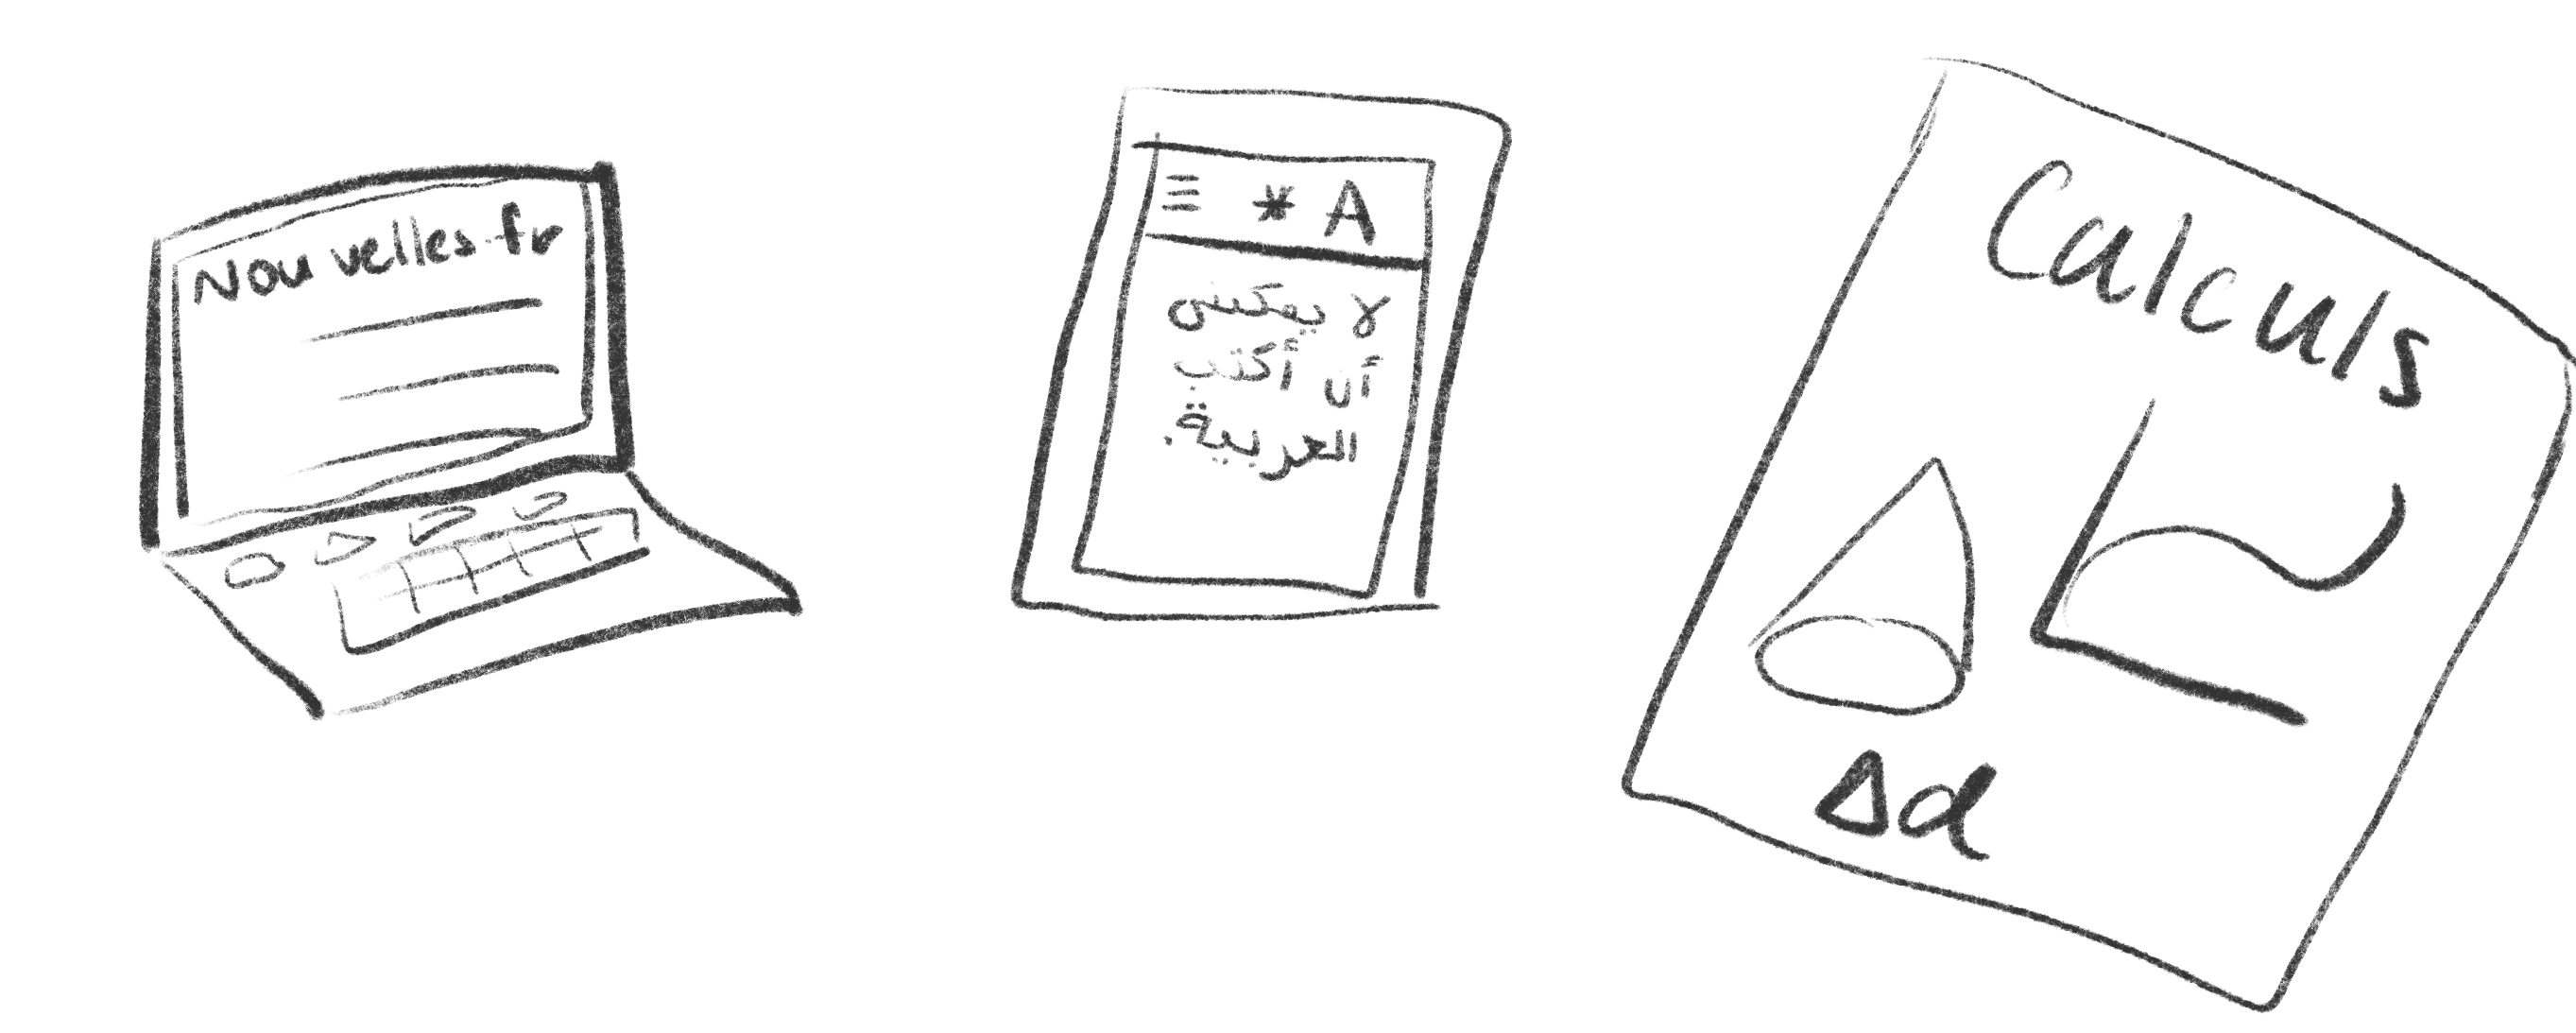 Nouvelles.fr
* A
لا يمكنني
أن أكتب
العربية.
Calculs
Δd